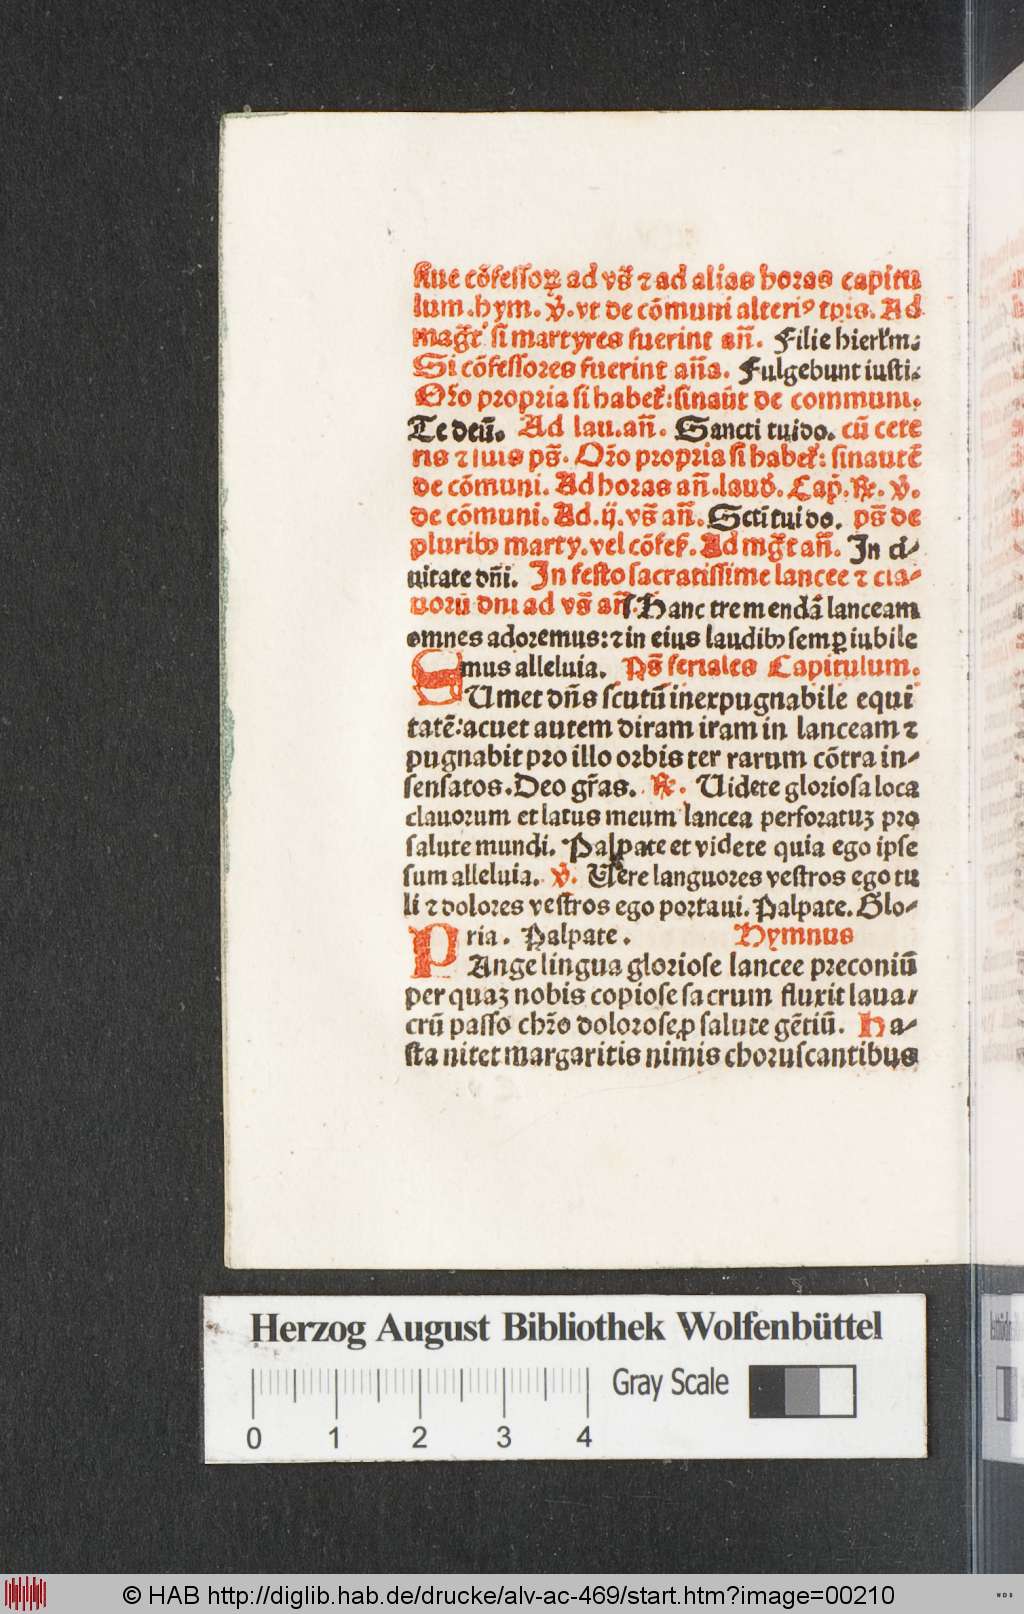 siue cōfessoꝝ ad vs̄ ⁊ ad alias horas capitu
lum.hym.ꝟ.vt de cōmuni alteriꝰ tp̄is.Ad
mag̅t si martyres fuerint an̄. Filie hierłm.
Si cōfessores fuerint an̄a. Fulgebunt iusti.
Or̄o propria si habet᷑:sinaūt de communi.
Te deū. Ad lau.an̄. Sancti tui do. cū cete
ris ⁊ suis ps̄. Or̄o propria si habet᷑: sinautē
de cōmuni. Ad horas an̄.laud̄. Cap̄. ℟. ꝟ.
de cōmuni. Ad.ij.vs̄ an̄. Scti tui do. ps̄ de
pluribꝰ marty.vel cōfes̄. Ad mg̅t an̄. In ci⸗
uitate dn̄i. In festo sacratissime lancee ⁊ cla⸗
uorū dn̄i ad vs̄ an̄. Hanc tremendā lanceam
omnes adoremus:⁊ in eius laudibꝰ semꝑ iubile
mus alleluia. Ps̄ feriales Capitulum.
SUmet dn̄s scutū inexpugnabile equi
tatē:acuet autem diram iram in lanceam ⁊
pugnabit pro illo orbis ter rarum cōtra in⸗
sensatos.Deo gr̄as. ℟. Uidete gloriosa loca
clauorum et latus meum lancea perforatuꝫ pro
salute mundi. Palpate et videte quia ego ipse
sum alleluia. ꝟ. Uere languores vestros ego tu
li ⁊ dolores vestros ego portaui. Palpate. Glo⸗
ria. Palpate. Hymnus
PAnge lingua gloriose lancee preconiū
per quaꝫ nobis copiose sacrum fluxit laua⸗
crū passo chr̄o dolorose ꝓ salute gētiū. Ha⸗
sta nitet margaritis nimis choruscantibus
Herzog August Bibliothek Wolfenbüttel
Gray Scale
0 1 2 3 4
© HAB http://diglib.hab.de/drucke/alv-ac-469/start.htm?image=00210